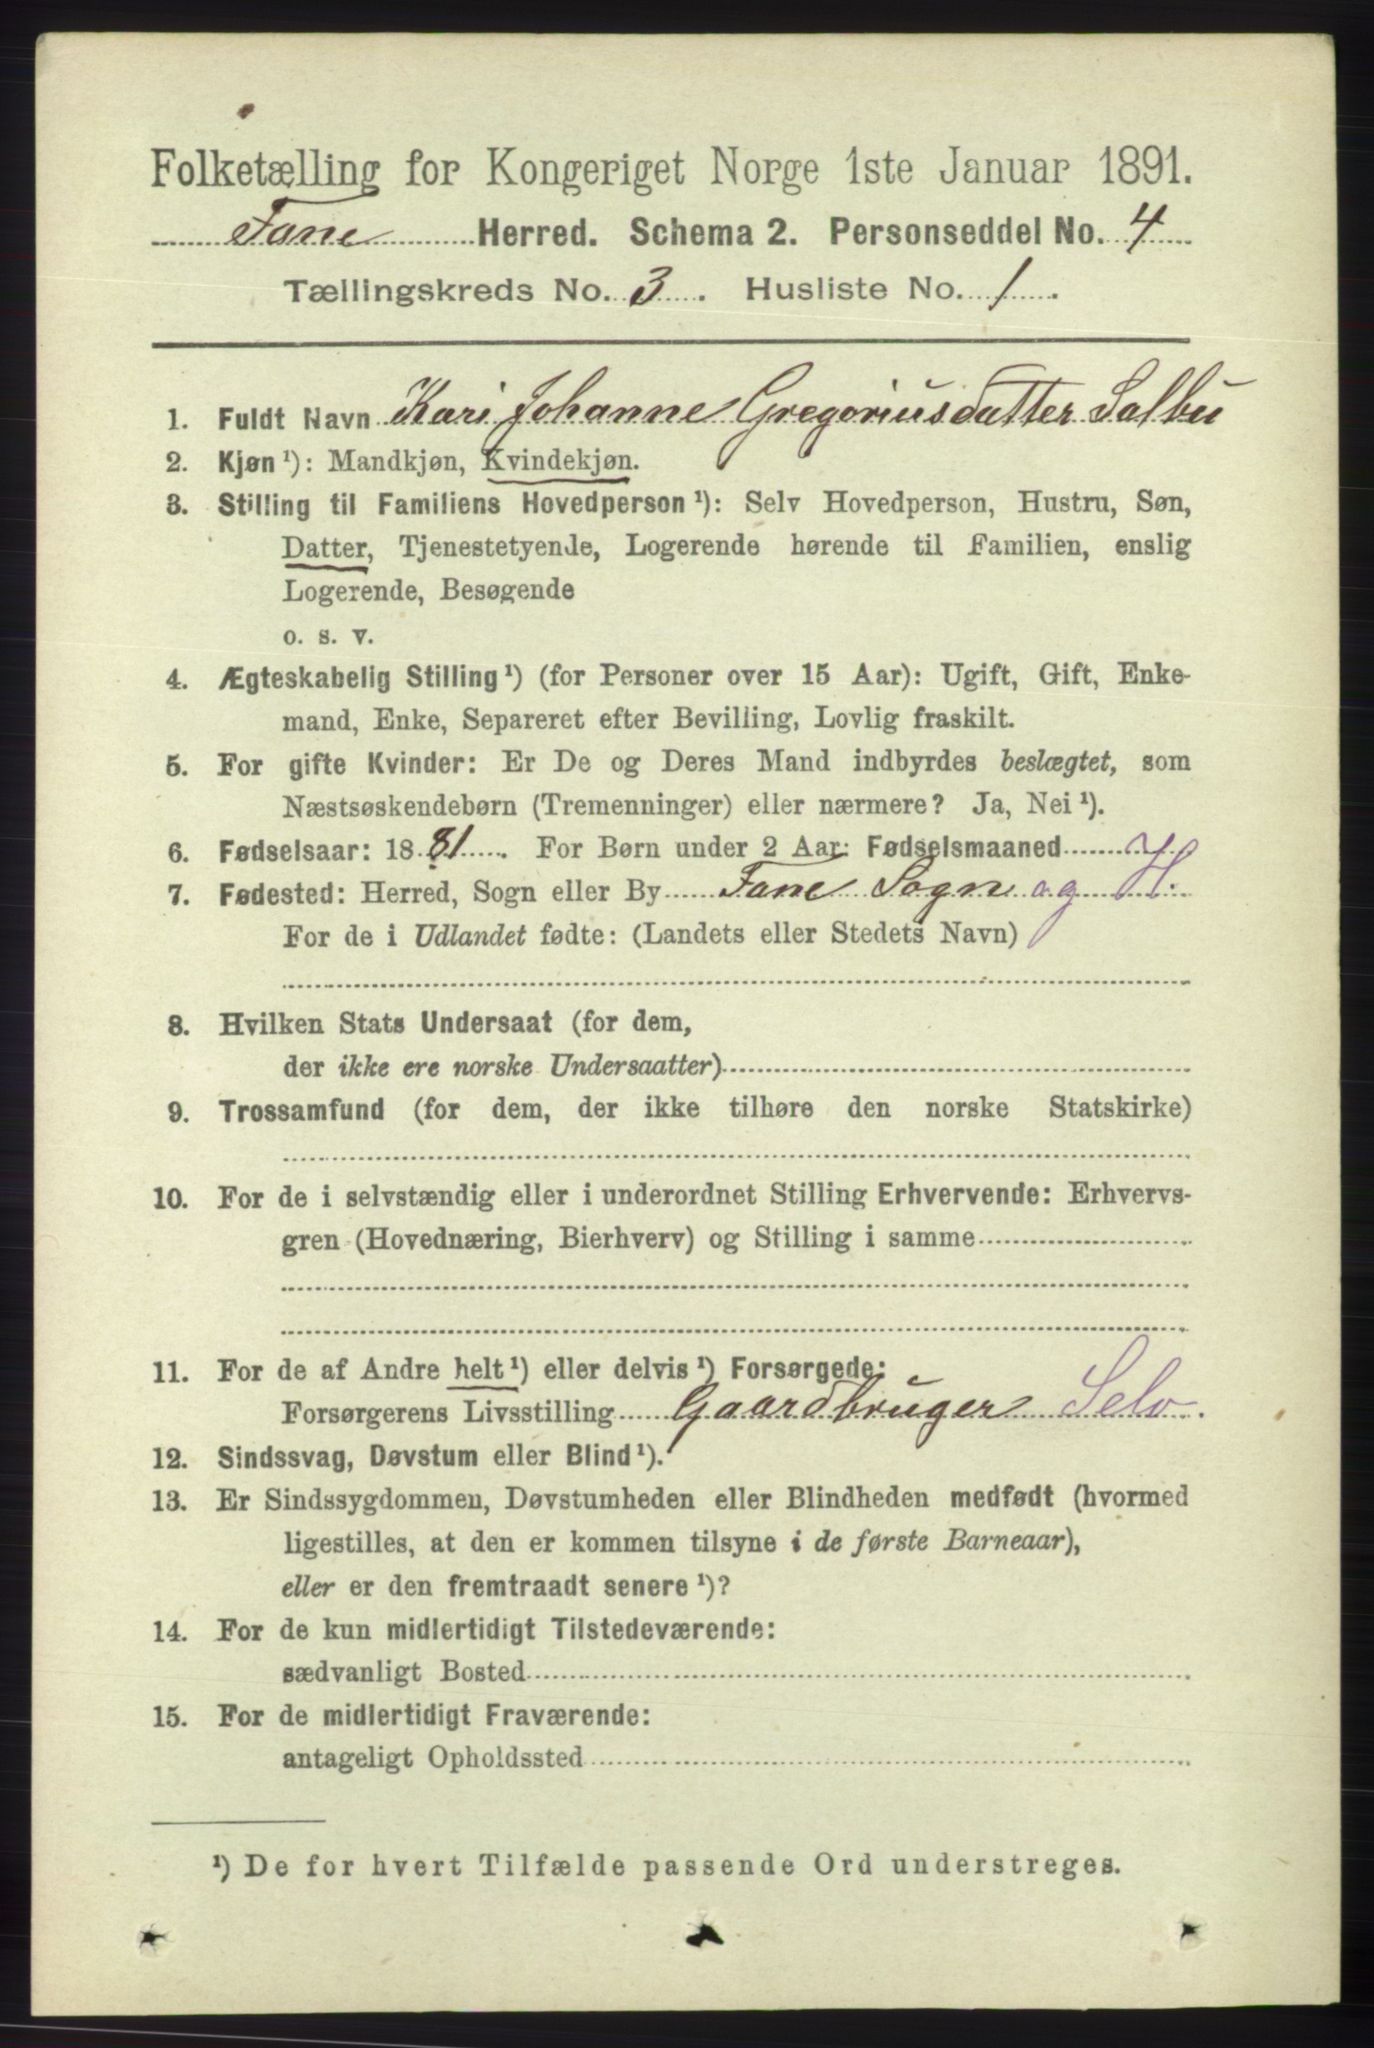 Folketælling for Kongeriget Norge 1ste Januar 1891.
Fane Herred. Schema 2. Personseddel No. 4
Tællingskreds No. 3. Husliste No. 1.
1. Fuldt Navn Kari Johanne Gregoriusdatter Salbu
2. Kjøn ¹): Mandkjøn, Kvindekjøn.
3. Stilling til Familiens Hovedperson ¹): Selv Hovedperson, Hustru, Søn,
Datter, Tjenestetyende, Logerende hørende til Familien, enslig
Logerende, Besøgende
o. s. v.
4. Ægteskabelig Stilling ¹) (for Personer over 15 Aar): Ugift, Gift, Enke-
mand, Enke, Separeret efter Bevilling, Lovlig fraskilt.
5. For gifte Kvinder: Er De og Deres Mand indbyrdes beslægtet, som
Næstsøskendebørn (Tremenninger) eller nærmere? Ja, Nei ¹).
6. Fødselsaar: 1881. For Børn under 2 Aar: Fødselsmaaned
7. Fødested: Herred, Sogn eller By Fane Sogn og H.
For de i Udlandet fødte: (Landets eller Stedets Navn)
8. Hvilken Stats Undersaat (for dem,
der ikke ere norske Undersaatter)
9. Trossamfund (for dem, der ikke tilhøre den norske Statskirke)
10. For de i selvstændig eller i underordnet Stilling Erhvervende: Erhvervs-
gren (Hovednæring, Bierhverv) og Stilling i samme
11. For de af Andre helt ¹) eller delvis ¹) Forsørgede:
Forsørgerens Livsstilling Gaardbruger Selv.
12. Sindssvag, Døvstum eller Blind ¹).
13. Er Sindssygdommen, Døvstumheden eller Blindheden medfødt (hvormed
ligestilles, at den er kommen tilsyne i de første Barneaar),
eller er den fremtraadt senere ¹)?
14. For de kun midlertidigt Tilstedeværende:
sædvanligt Bosted
15. For de midlertidigt Fraværende:
antageligt Opholdssted
¹) De for hvert Tilfælde passende Ord understreges.